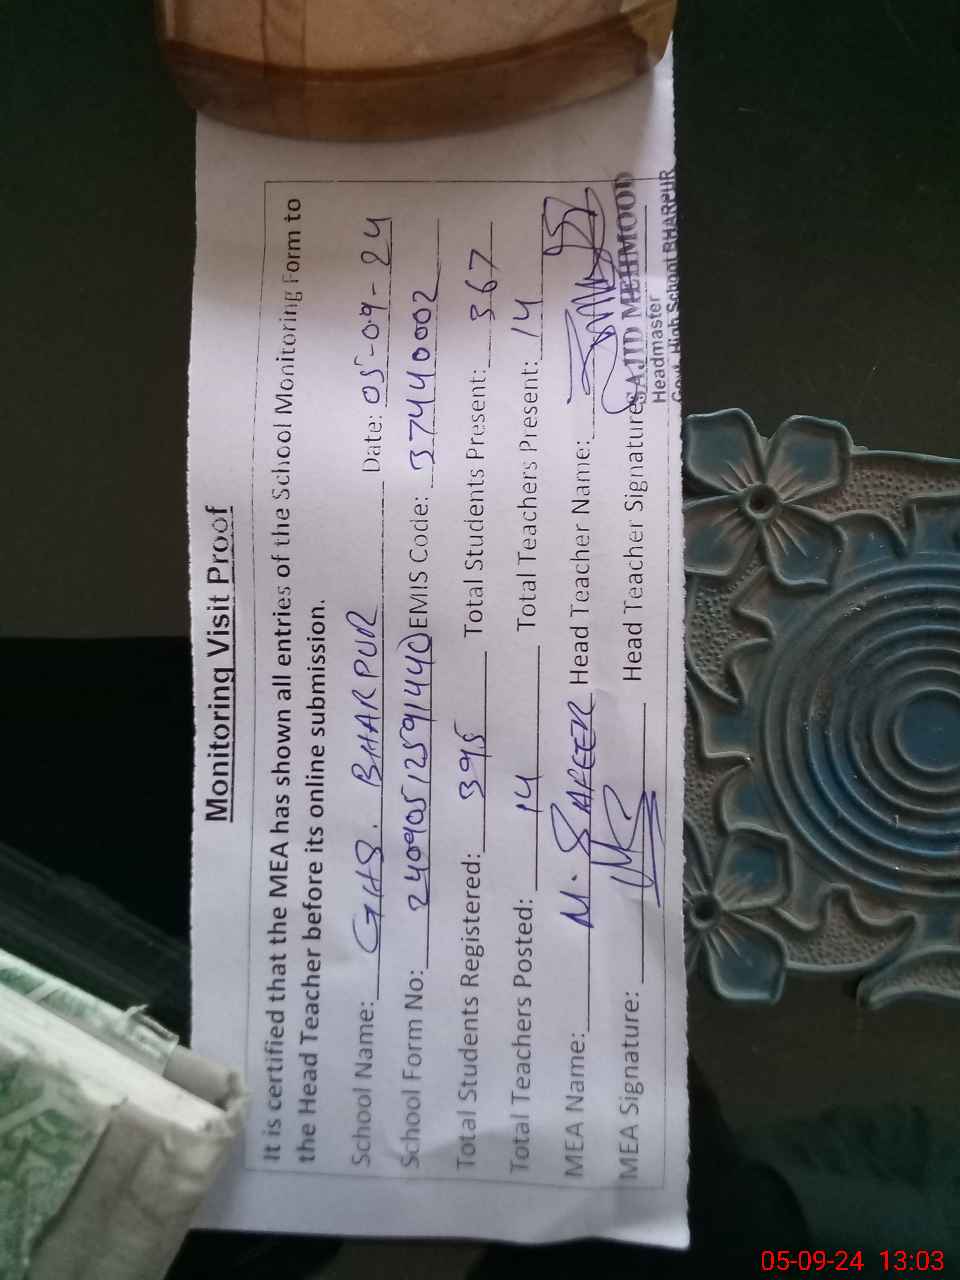 Monitoring Visit Proof
It is certified that the MEA has shown all entries of the School Monitoring Form to
the Head Teacher before its online submission.
School Name: GHS. BHARPUR Date: 05-09-24
School Form No: 24090512591440 EMIS Code: 37440002
Total Students Registered: 395 Total Students Present: 367
Total Teachers Posted: 14 Total Teachers Present: 14
MEA Name: M. SAFEER Head Teacher Name:
MEA Signature: Head Teacher Signature:
SAJID MEHMOOD
Headmaster
Govt. High School BHARPUR
05-09-24 13:03